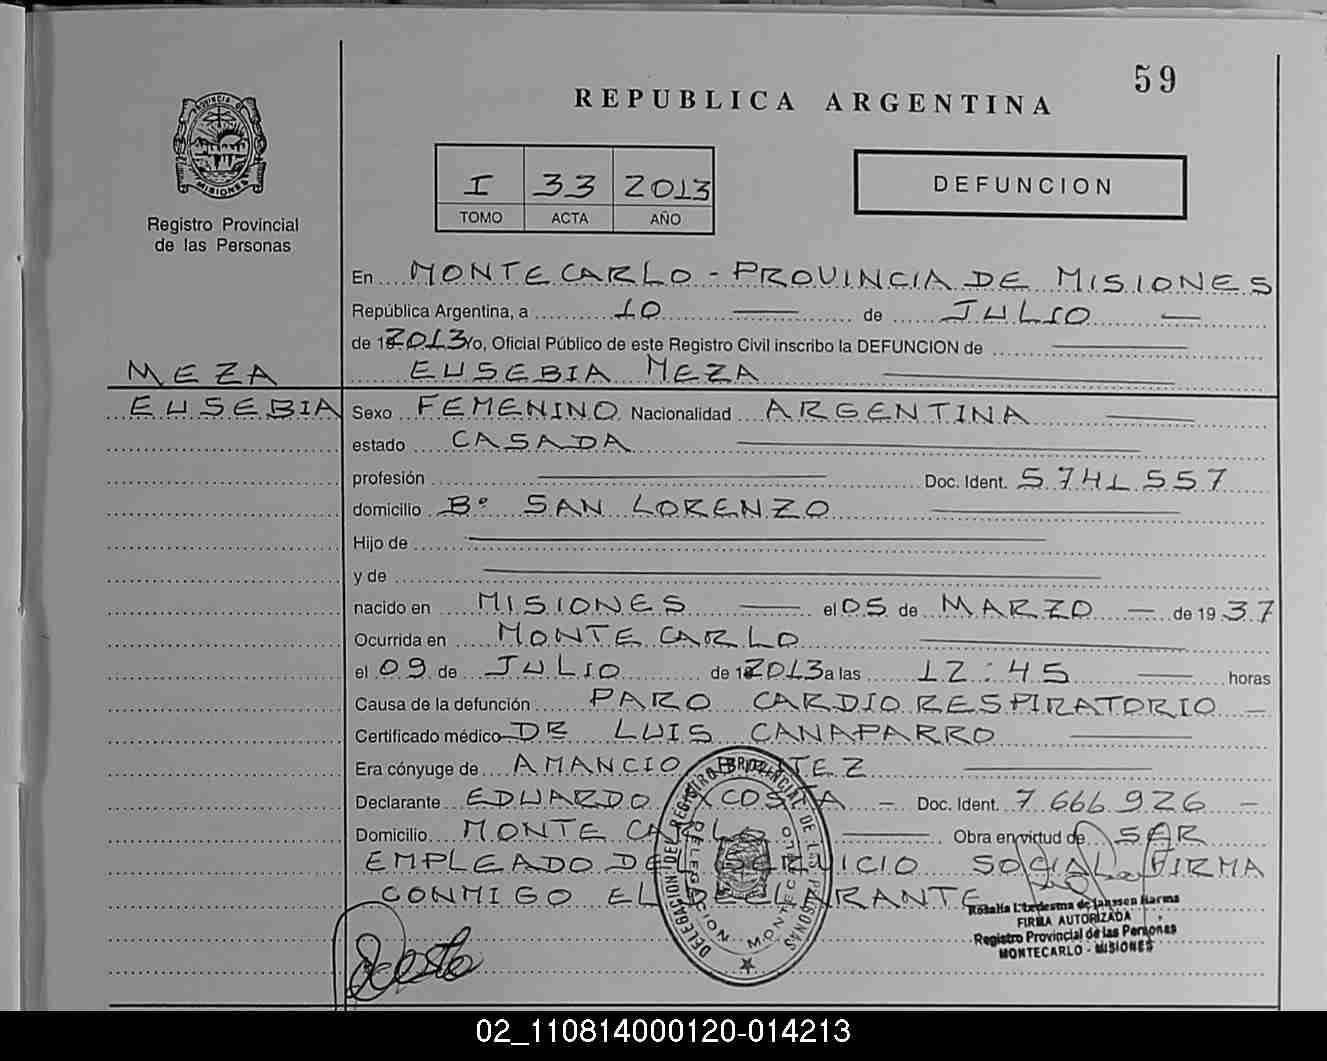 59
REPUBLICA ARGENTINA
PROVINCIA DE MISIONES
Registro Provincial
de las Personas
I 33 2013
TOMO ACTA AÑO
DEFUNCION
En MONTECARLO - PROVINCIA DE MISIONES
República Argentina, a 10 de JULIO
de 2013 Yo, Oficial Público de este Registro Civil inscribo la DEFUNCION de
MEZA EUSEBIA MEZA
EUSEBIA Sexo FEMENINO Nacionalidad ARGENTINA
estado CASADA
profesión Doc. Ident. 5.741.557
domicilio Bº SAN LORENZO
Hijo de
y de
nacido en MISIONES el 05 de MARZO de 1937
Ocurrida en MONTECARLO
el 09 de JULIO de 2013 a las 12:45 horas
Causa de la defunción PARO CARDIORESPIRATORIO
Certificado médico DR LUIS CANAPARRO
Era cónyuge de AMANCIO
Declarante EDUARDO ACOSTA - Doc. Ident. 7.666.926 -
Domicilio MONTECARLO Obra en virtud de SER
EMPLEADO DEL SERVICIO SOCIAL FIRMA
CONMIGO EL DECLARANTE
DELEGACION DEL REGISTRO PROVINCIAL DE LAS PERSONAS
DELEGACION MONTECARLO
FIRMA AUTORIZADA
Registro Provincial de las Personas
MONTECARLO - MISIONES
02_110814000120-014213